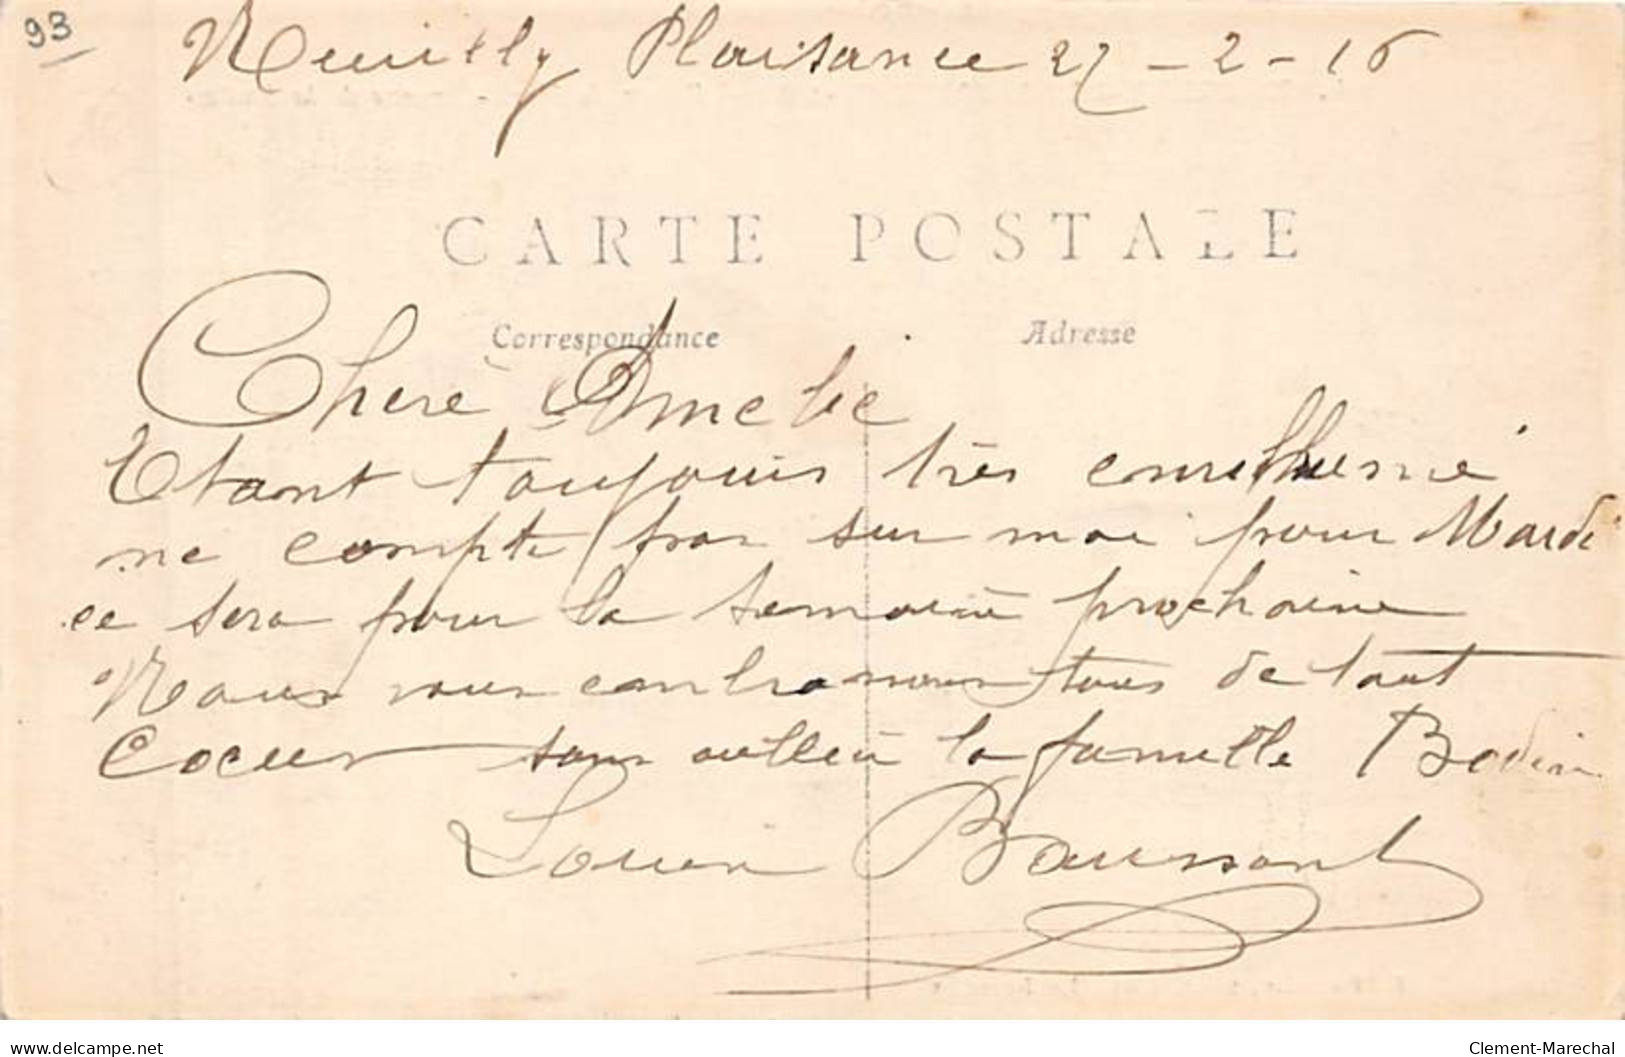 93
Neuilly Plaisance 27-2-16
CARTE POSTALE
Correspondance
Adresse
Chere Amelie
Etant toujours très enrhumé
ne compte pas sur moi pour Mardi
ce sera pour la semaine prochaine
Nous vous embrassons tous de tout
Coeur sans oublier la famille Bodin
Louis Baussant
www.delcampe.net
Clement-Marechal